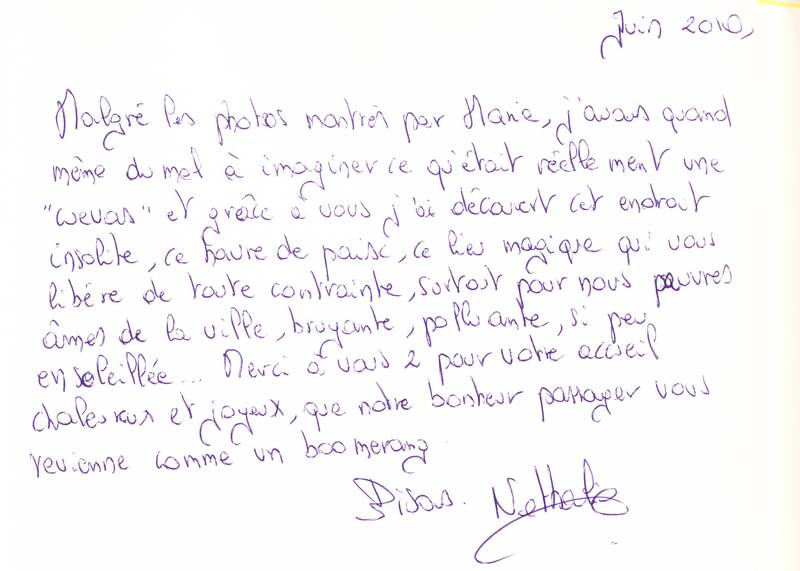 Juin 2010,
Malgré les photos montrés par Marie, j'avais quand
même du mal à imaginer ce qu'était réellement une
"cuevas" et grâce à vous j'ai découvert cet endroit
insolite, ce havre de paix, ce lieu magique qui vous
libère de toute contrainte, surtout pour nous pauvres
âmes de la ville, bruyante, polluante, si peu
ensoleillée... Merci à vous 2 pour votre accueil
chaleureux et joyeux, que notre bonheur passager vous
revienne comme un boomerang
Bisous. Nathalie